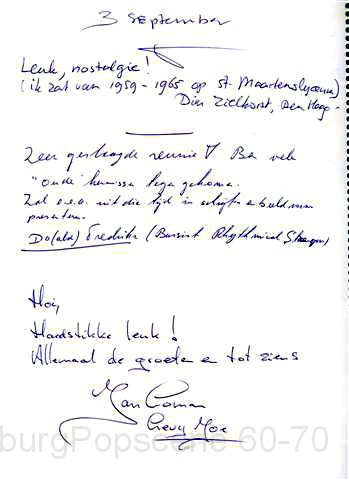 3 September
Leuk, nostalgie!
(ik zat van 1959 - 1965 op St. Maartenslyceum)
Zielhorst, Den Haag -
Zeer geslaagde reunie! Ben vele
"oude" kennissen tegen gekomen.
Zal o.e.a. uit die tijd in schrift en beeld
Do(ald) Fredriksz (Bassist Rhythmical Strangers)
Hoi,
Hardstikke leuk!
Allemaal de groeten en tot ziens
burgPopscene 60-70